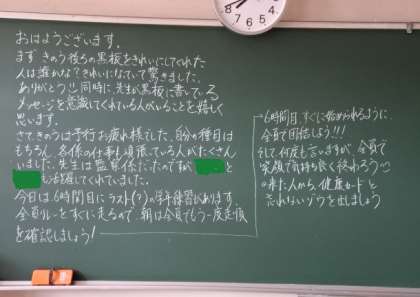 おはようございます。
まず きのう後ろの黒板をきれいにしてくれた
人は誰かな？きれいになっていて驚きました。
ありがとう。と同時に、先生が黒板に書いている
メッセージを意識してくれている人がいることを嬉しく
思います。
さて、きのうは予行お疲れ様でした。自分の種目は
もちろん、各係の仕事も頑張っている人がたくさん
いました。先生は監察係だったのですが と
も活躍してくれていました。
今日は、6時間目にラスト(?)の学年練習があります。
全員リレーをすぐに走るので 朝は全員でもう一度走順
を確認しましょう！
6時間目、すぐに始められるように
全員で団結しよう!!!
そして何度も言いますが、全員で
笑顔で気持ち良く終わろう
◎来た人から、健康カードと
忘れないゾウを出しましょう